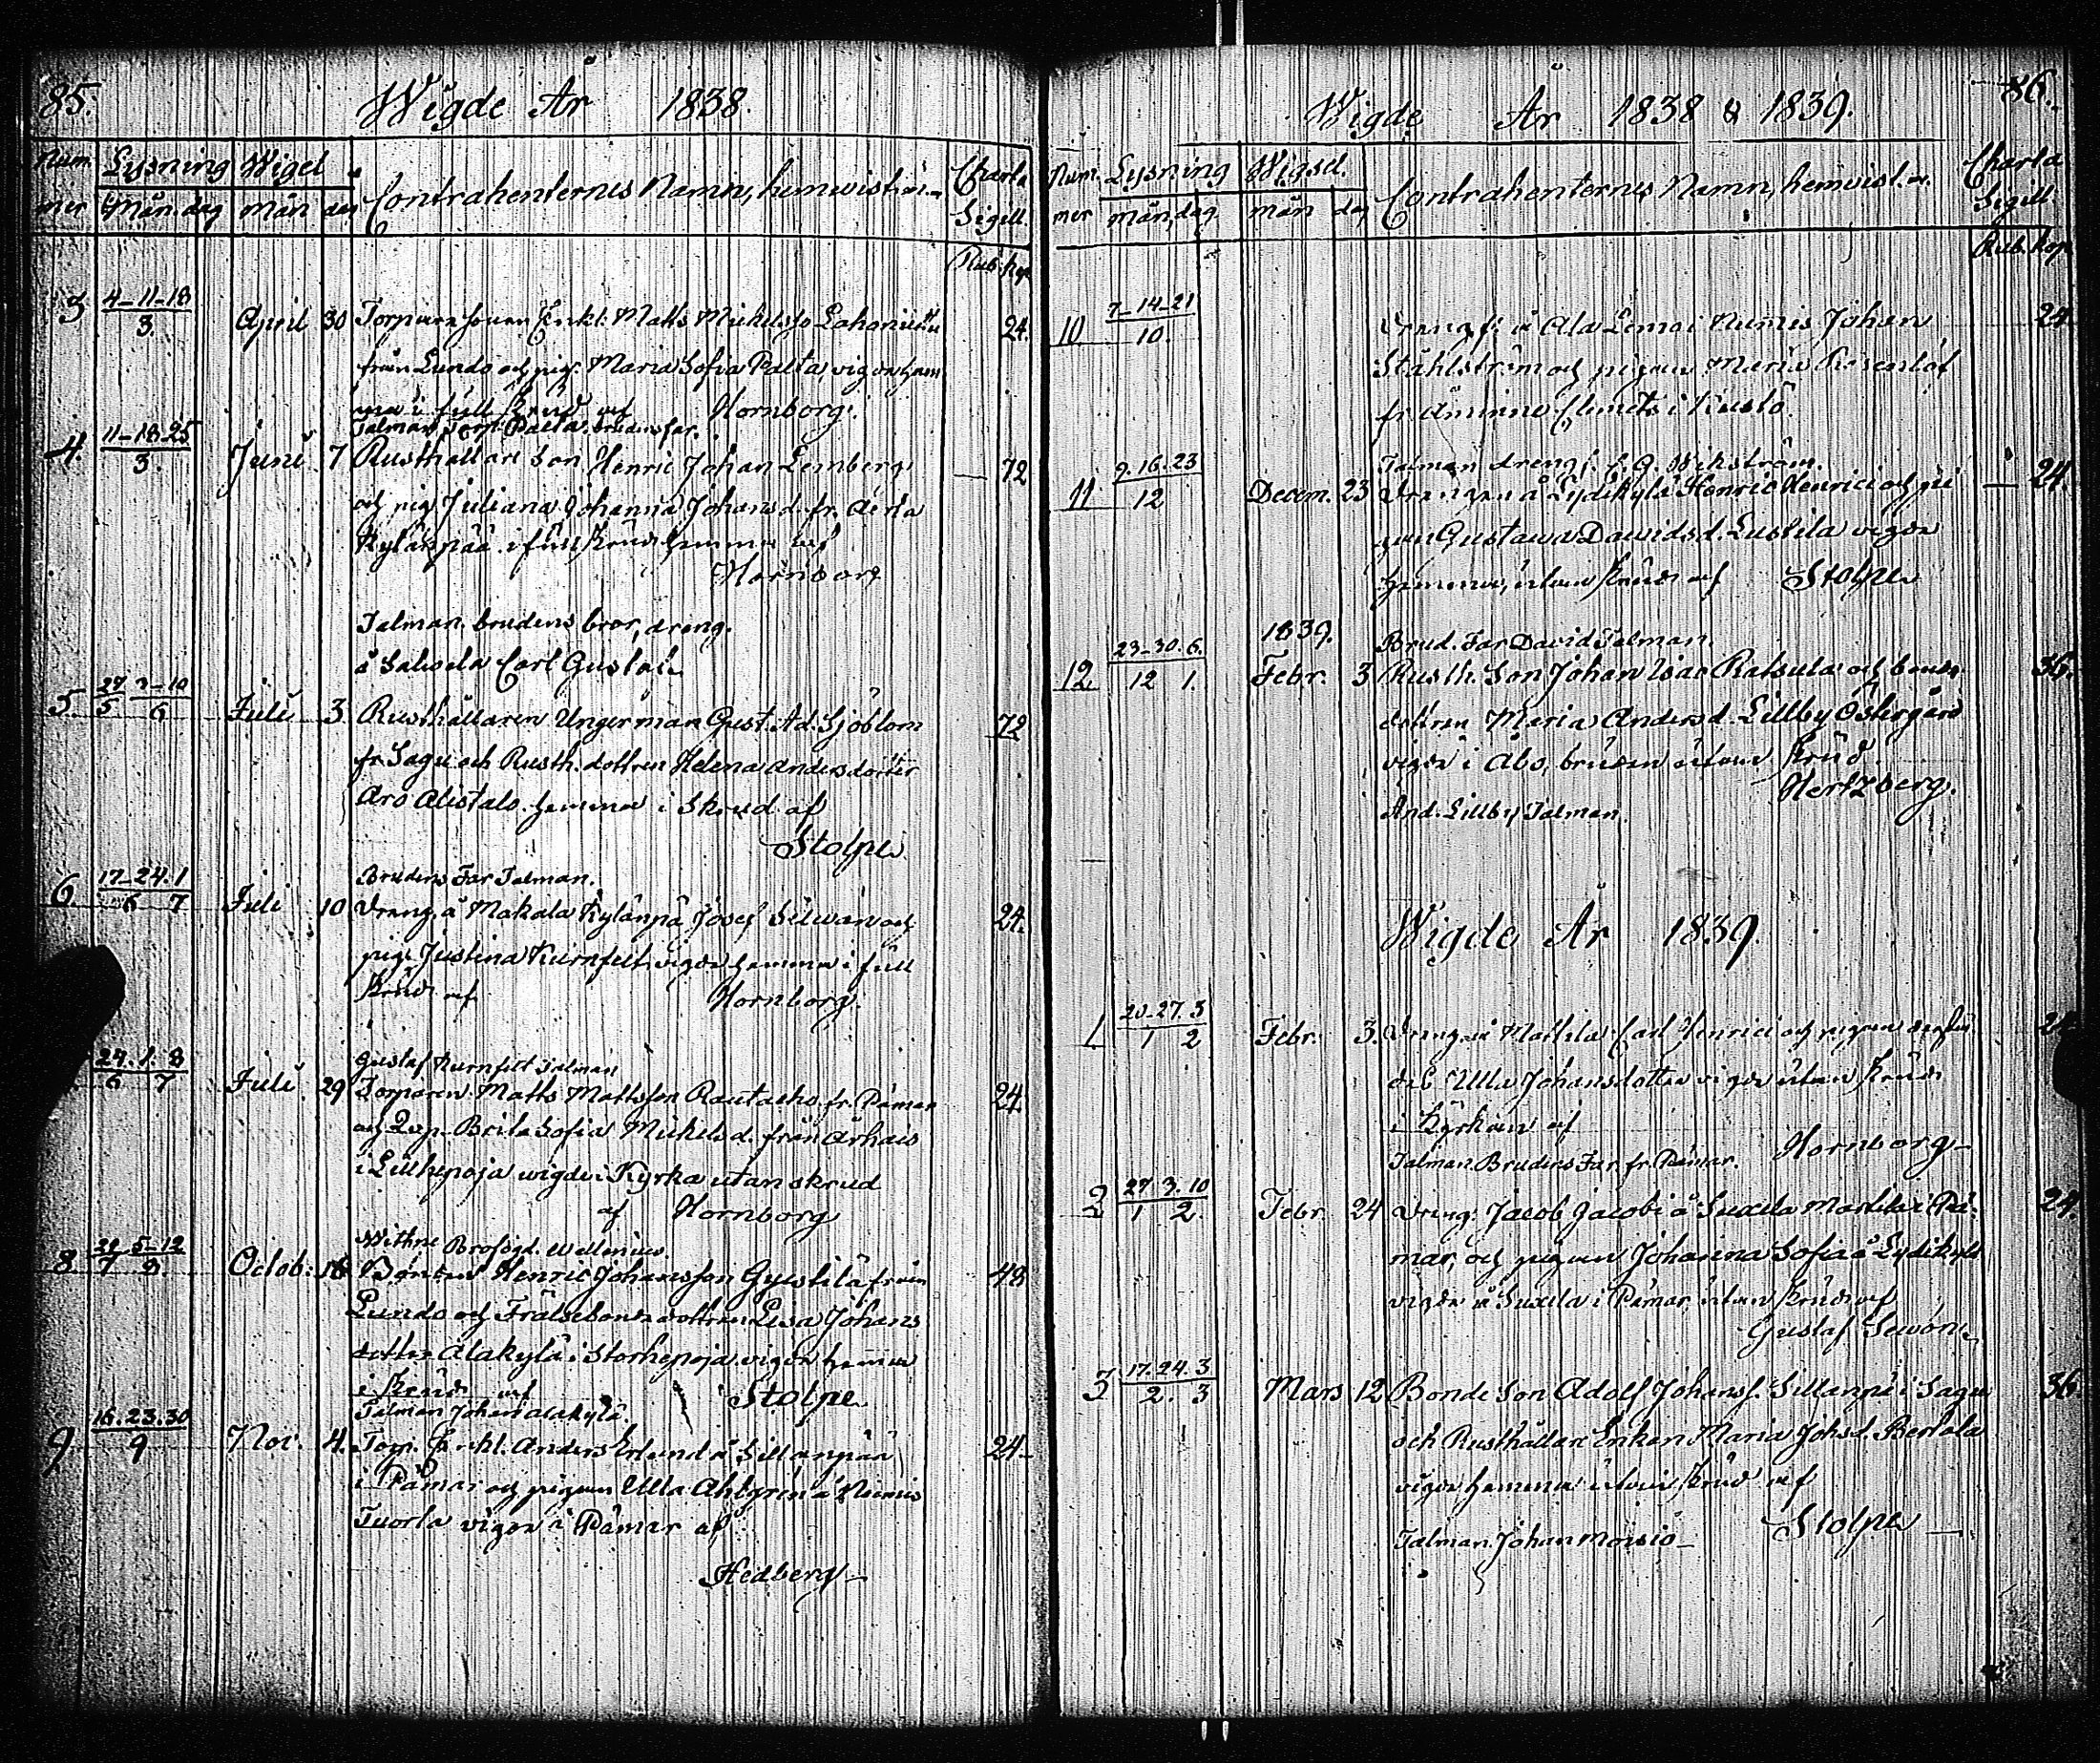 85.
Wigde År 1838.
Num mer Lysning Mån. dag Wigel mån dag Contrahenternes Namn, hemvist m. Charta Sigill.
Rub. kop
3 4-11-18 / 3. April 30 Torparesonen Enkl. Matts Mickelsso 24.
från Lundo och pig. Maria Sofia Palta, vigde hem
ma i full skrud af Hornborg.
Talman Torp. Palta. brudens far.
4. 11-18-25 / 3. Juni 7 Rusthållare Son Henric Johan Lemberg 72
och pig Juliana Johanna Johansd. fr. Aerla
Kylänpää i full skrud hemma af
Hornborg
Talman brudens bror, dreng.
å Saksela Carl Gustaf.
5 27 3-10 / 5 6 Juli 3 Rusthållaren Ungerman Gust. Ad. Sjöblom 72
fr Sagu och Rusth. dottren Helena Andersdotter
Aro Alistalo hemma i Skrud af
Stolpe
Brudens Far Talman.
6. 17-24.1 / 6 7 Juli 10 Dreng å Makala Kylänpä Josef Silwan och 24.
pige Justina Kurnfelt, vigde hemma i full
skrud af Hornborg.
Gustaf Kurnfelt Talman
24.1.8 / 6 7 Juli 29 Torparen Matts Mattsson Rautaeho fr. Pämar 24.
og Qvp. Brita Sofia Mickelsd. från Arhais
i Littlepoja wigde i Kyrka utan skrud
af Hornborg
Withne Brofogd. Wallenius.
8 5-12 / 7 8 Octob. 16 Bonden Henric Johansson Gyustilä från 48
Lundo och Frälsebondedottren Lisa Johans
dotter Alakylä i Storhepoja vigde hemma
i skrud af Stolpe
Talman Johan Alakylä.
9. 16.23.30 / 9 Nov. 4. Torp. Enkl. Anders Erlund å Sillanpää 24-
i Pämar och pigan Ulla Ahlgrén å Niemis
Tuorla vigde i Pämar af
Hedberg-
86.
Wigde År 1838 & 1839.
Num. mer Lysning mån, dag Wigsel. mån dag Contrahenternes Namn, hemvist. m. Charta Sigill
Rub. kop
10 7-14-21 / 10. Dreng f. å Ala Lemoi Numis Johan 24
Ståhlström och pigan Maria Rosenlöf
fr Åminne Clemets i Kustö.
Talman dreng f. C. G. Wikström.
11 9.16.23 / 12 Decem. 23 Drengen å Lydikylä Henric Henrici och pi 24.
gan Gustawa Davidsd. Lustila vigde
hemma, utan skrud af Stolpe
1839. Brud. Far David Talman.
12 23-30.6. / 12 1. Febr. 3 Rusth. Son Johan Isac Ratsula och bonde 36.
dottren Maria Andersd. Lillby Östergård
vigde i Åbo, bruden utan skrud.
Hertzberg.
And. Lillby Talman.
Wigde År 1839.
1 20-27.3 / 1 2 Febr. 3. Dreng. å Mattila Carl Henrici och pigan 24
Ulla Johansdotter vigde utan skrud
i Kyrkan af
Talman Brudens Far fr. Pämar. Hornborg-
2 27.3.10 / 1 2. Febr. 24 Dreng. Jacob Jacobi å Suxela Marttila i Pä- 24.
mar, och pigan Johanna Sofia å Lydikylä
vigde å Suxela i Pämar utan skrud af
Gustaf Sewon.
3 17.24.3 / 2. 3 Mars 12 Bonde Son Adolf Johanss. Sillanpä i Sagu 36
och Rusthållare Enkan Maria Johsd. Bertala
vigde hemma utan skrud af
Talman Johan Moisio- Stolpe